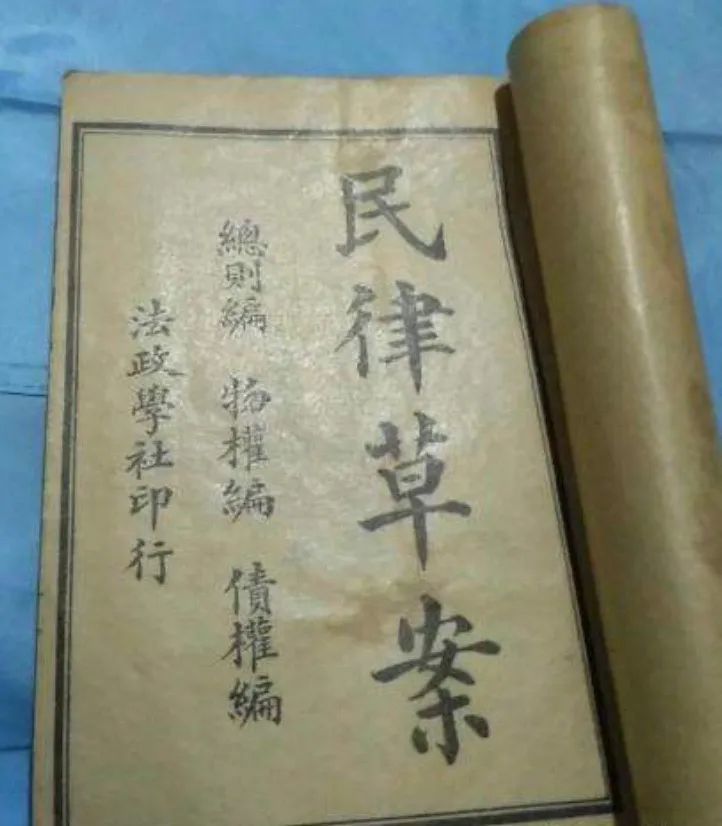 民律草案
總則編 物權編 債權編
法政學社印行